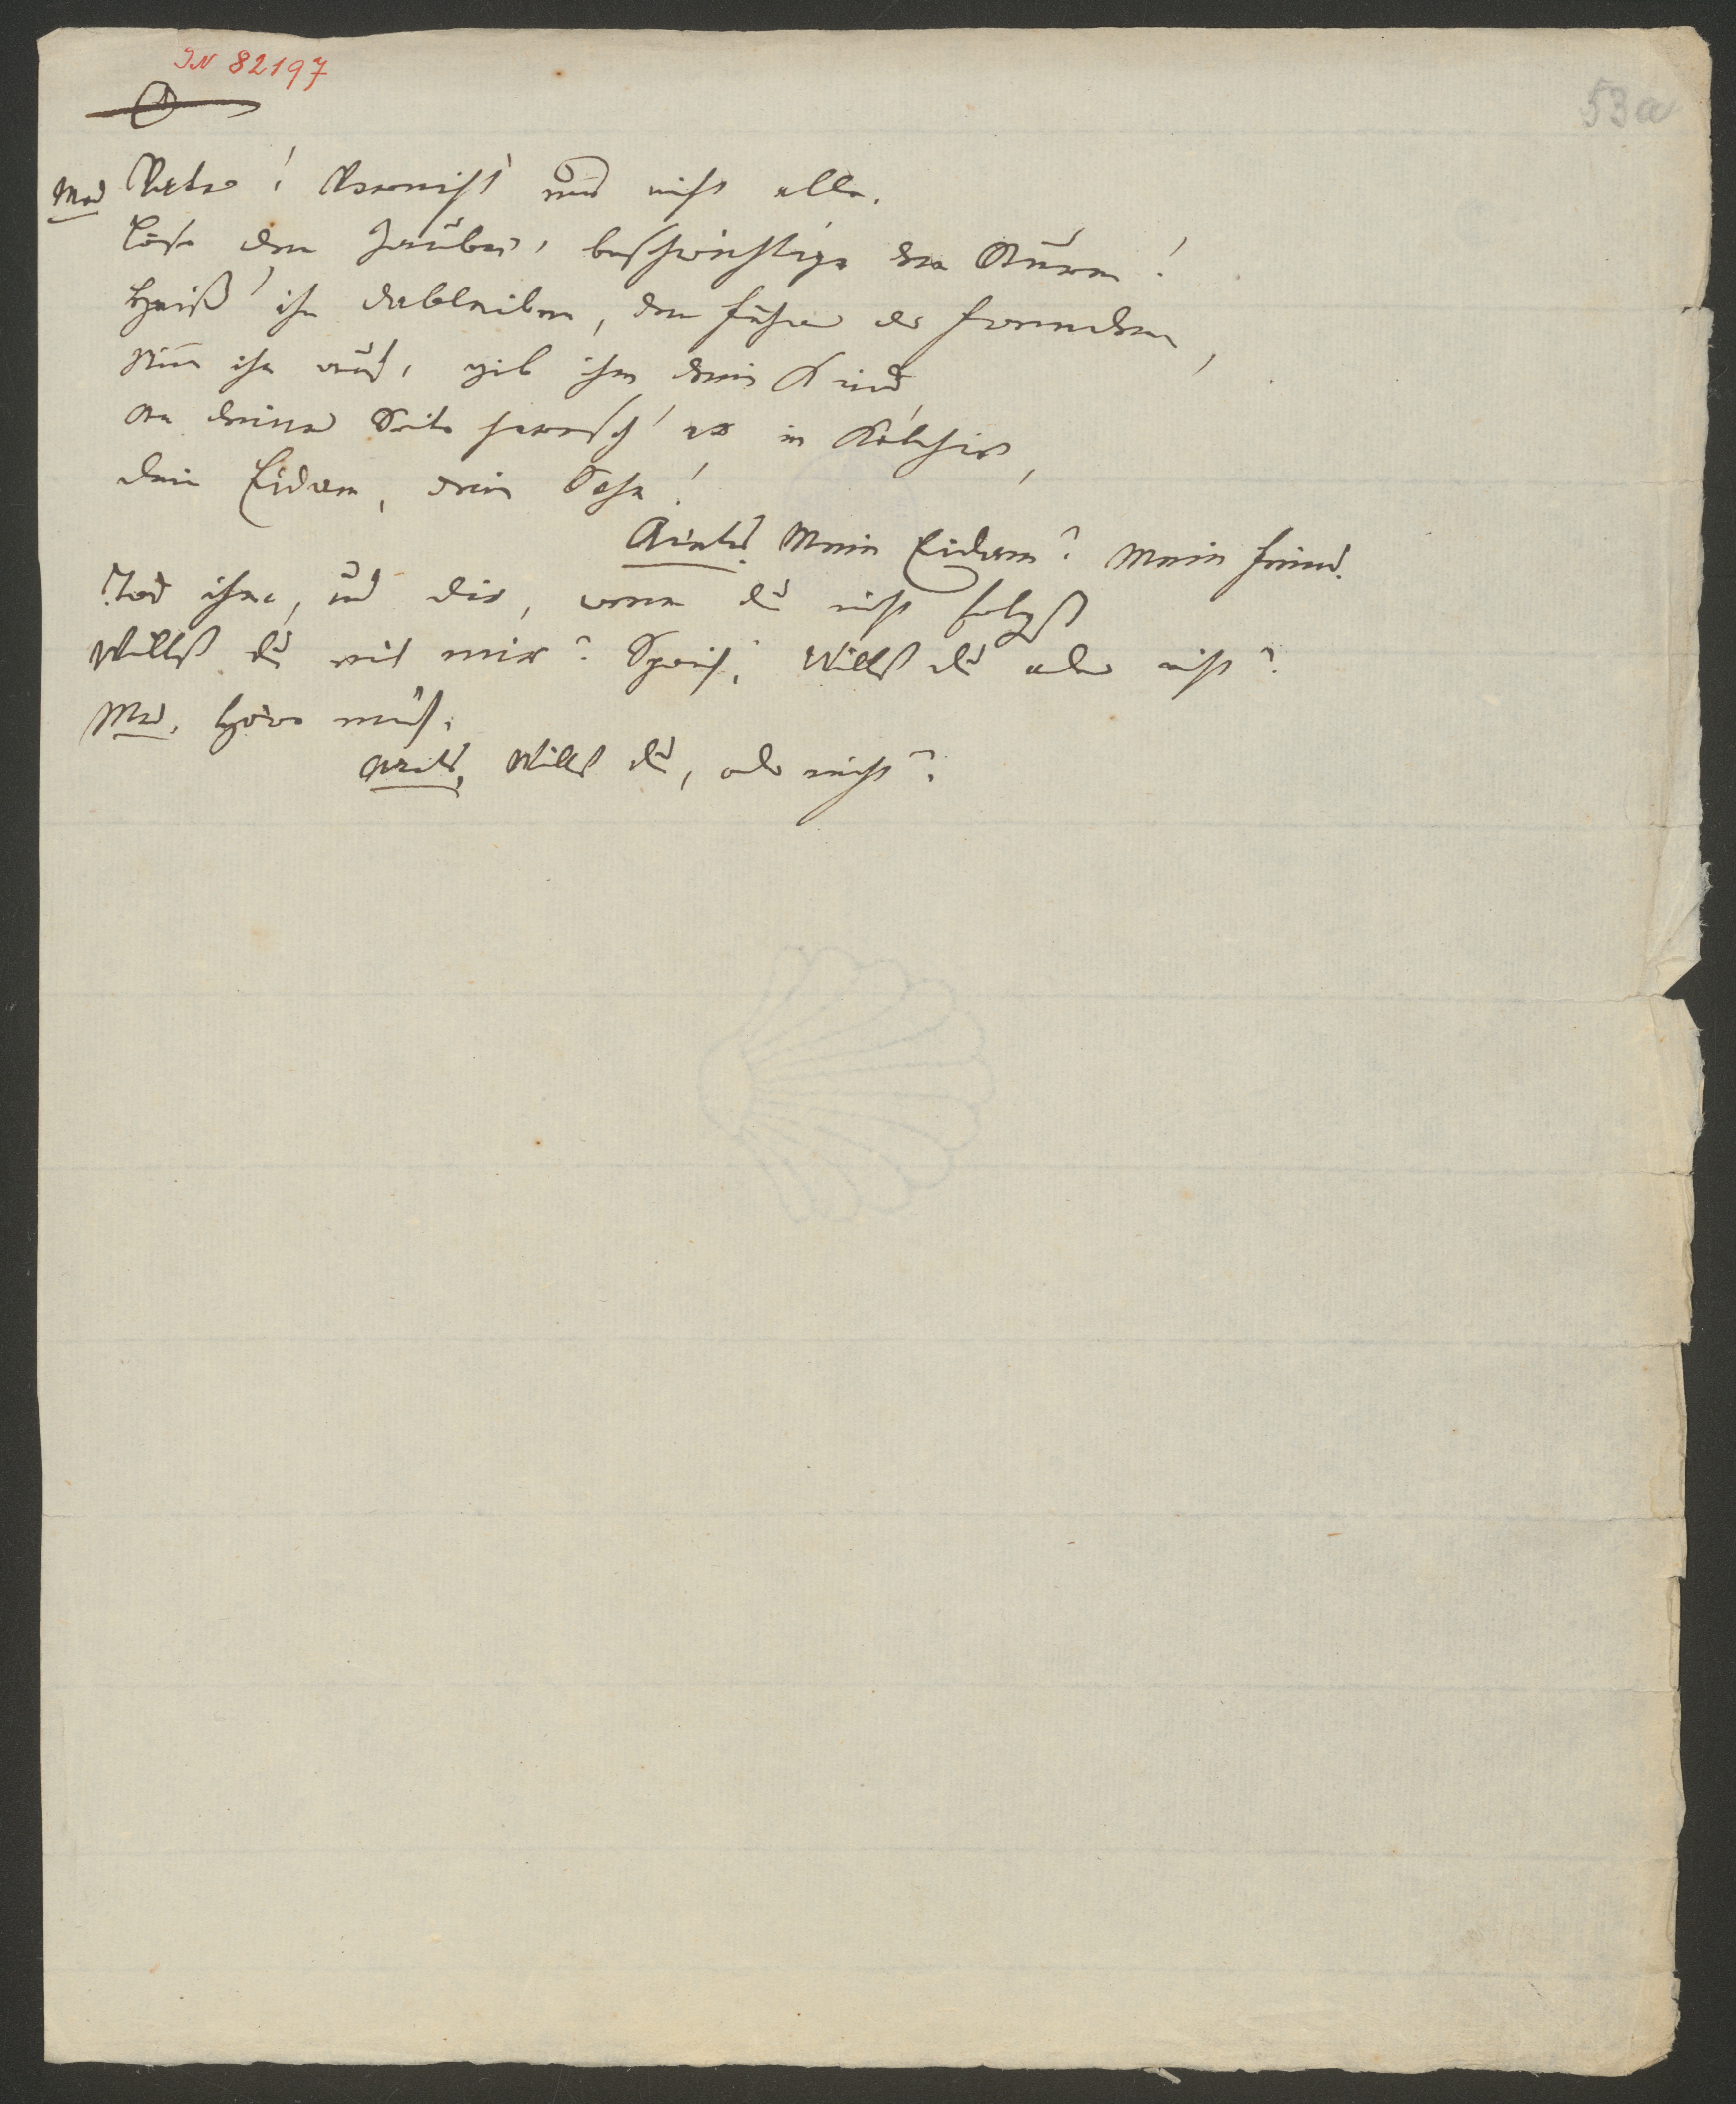 IN 82197
53a
Med Vater! Vernicht uns nicht alle.
Löse den Zauber, beschwichtige den Sturm!
Heiß' ihn dableiben, den Führer der Fremden,
Nim ihn auf, gib ihm dein Kind
An deiner Seite herrsch' er in Kolchis,
dein Eidam, dein Sohn!
Aietes. Mein Eidam? Mein Feind.
Tod ihm, und dir, wenn du nicht folgst
Willst du mit mir? Sprich! Willst du oder nicht?
Med. Höre mich.
Aietes, Willst du, oder nicht?